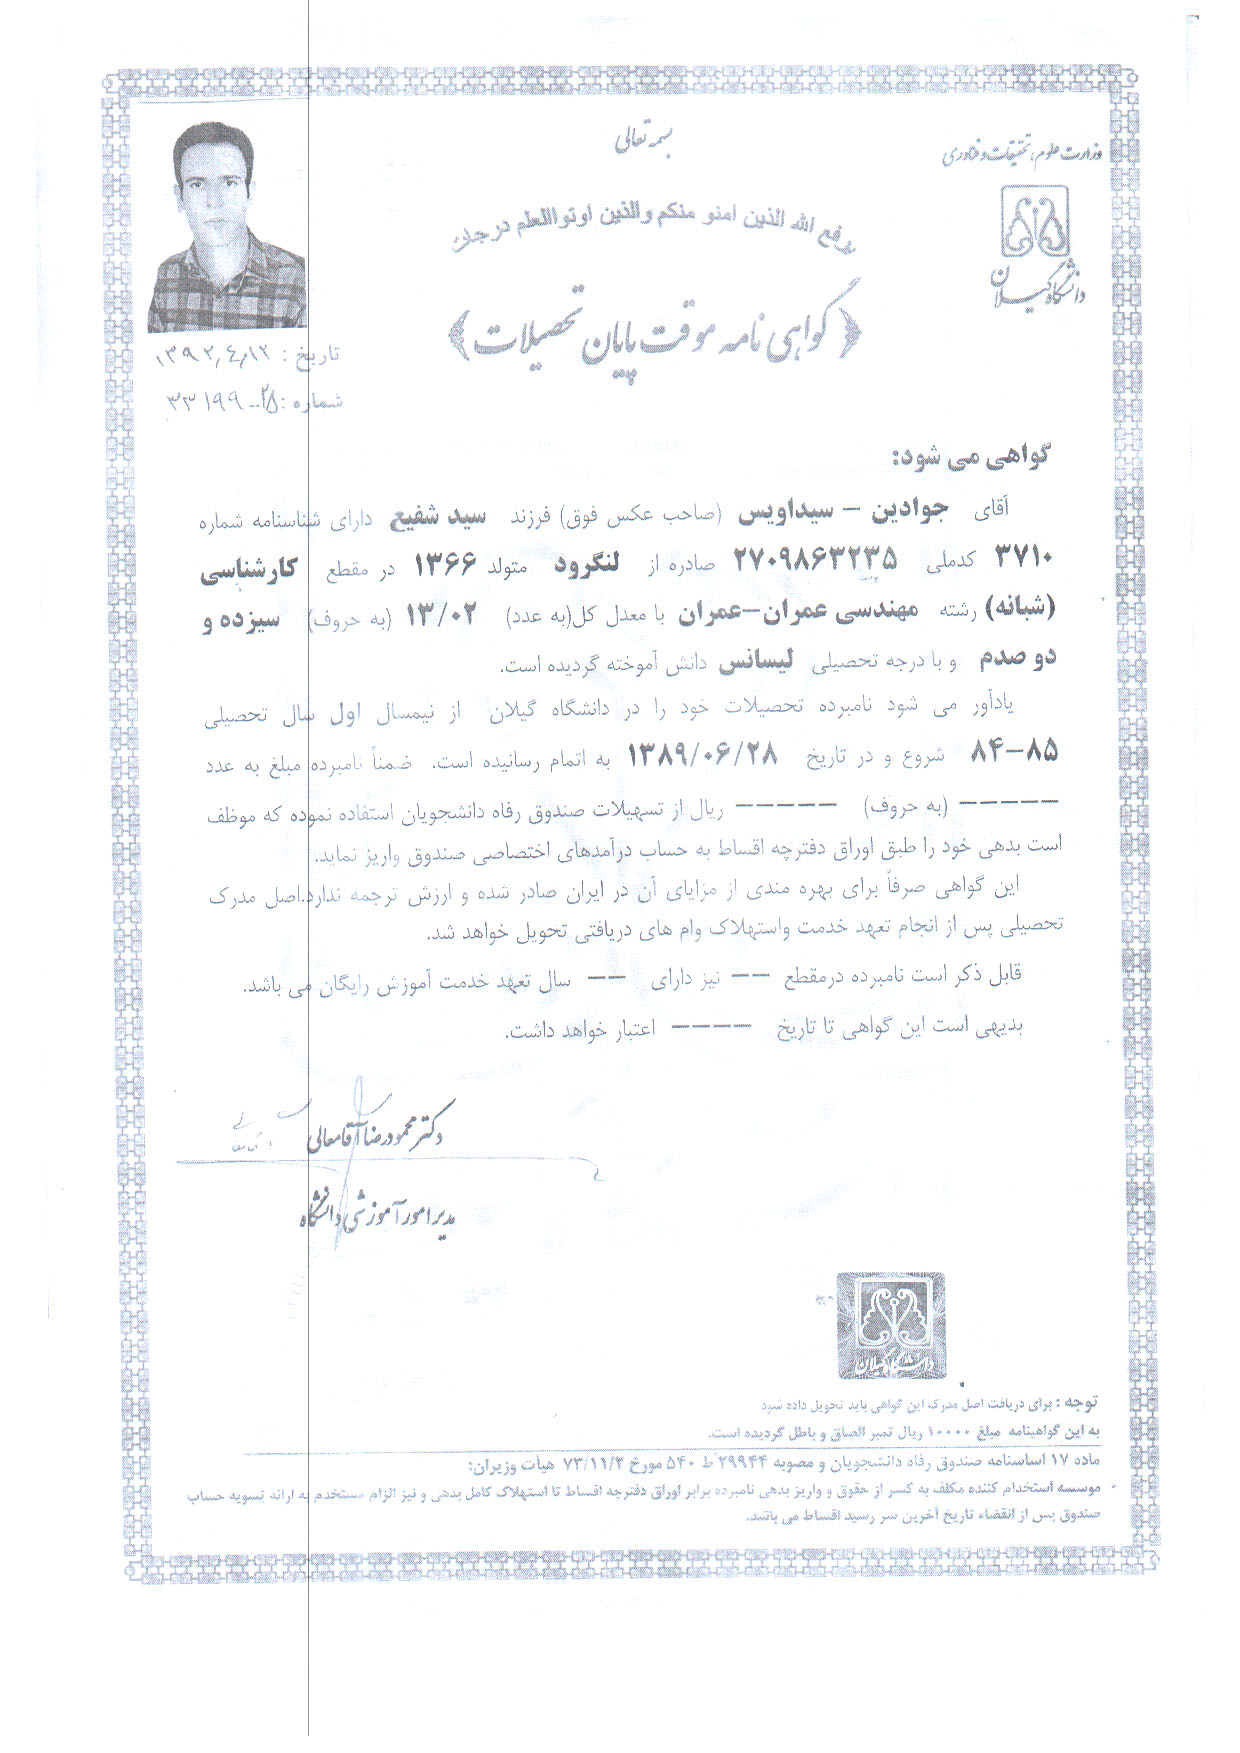 بسمه تعالی
وزارت علوم، تحقیقات و فناوری
یرفع الله الذین امنو منکم والذین اوتواللعلم درجات
دانشگاه گیلان
﴿گواهی نامه موقت پایان تحصیلات﴾
تاریخ : ۱۳۹۲,۴,۱۲
شماره :
گواهی می شود:
آقای جوادین – سیداویس (صاحب عکس فوق) فرزند سید شفیع دارای شناسنامه شماره
۳۷۱۰ کدملی ۲۷۰۹۸۶۳۲۳۵ صادره از لنگرود متولد ۱۳۶۶ در مقطع کارشناسی
(شبانه) رشته مهندسی عمران-عمران با معدل کل(به عدد) ۱۳/۰۲ (به حروف) سیزده و
دو صدم و با درجه تحصیلی لیسانس دانش آموخته گردیده است.
یادآور می شود نامبرده تحصیلات خود را در دانشگاه گیلان از نیمسال اول سال تحصیلی
۸۴-۸۵ شروع و در تاریخ ۱۳۸۹/۰۶/۲۸ به اتمام رسانیده است. ضمناً نامبرده مبلغ به عدد
----- (به حروف) ----- ریال از تسهیلات صندوق رفاه دانشجویان استفاده نموده که موظف
است بدهی خود را طبق اوراق دفترچه اقساط به حساب درآمدهای اختصاصی صندوق واریز نماید.
این گواهی صرفاً برای بهره مندی از مزایای آن در ایران صادر شده و ارزش ترجمه ندارد.اصل مدرک
تحصیلی پس از انجام تعهد خدمت واستهلاک وام های دریافتی تحویل خواهد شد.
قابل ذکر است نامبرده درمقطع -- نیز دارای -- سال تعهد خدمت آموزش رایگان می باشد.
بدیهی است این گواهی تا تاریخ ---- اعتبار خواهد داشت.
دکتر محمود رضا آقامعالی
مدیر امور آموزشی دانشگاه
دانشگاه گیلان
توجه : برای دریافت اصل مدرک این گواهی باید تحویل داده شود
به این گواهینامه مبلغ ۱۰۰۰۰ ریال تمبر الصاق و باطل گردیده است.
ماده ۱۷ اساسنامه صندوق رفاه دانشجویان و مصوبه ۲۹۹۴۴ ط ۵۴۰ مورخ ۷۳/۱۱/۲ هیأت وزیران:
موسسه استخدام کننده مکلف به کسر از حقوق و واریز بدهی نامبرده برابر اوراق دفترچه اقساط تا استهلاک کامل بدهی و نیز الزام مستخدم به ارائه تسویه حساب
صندوق پس از انقضاء تاریخ آخرین سر رسید اقساط می باشد.